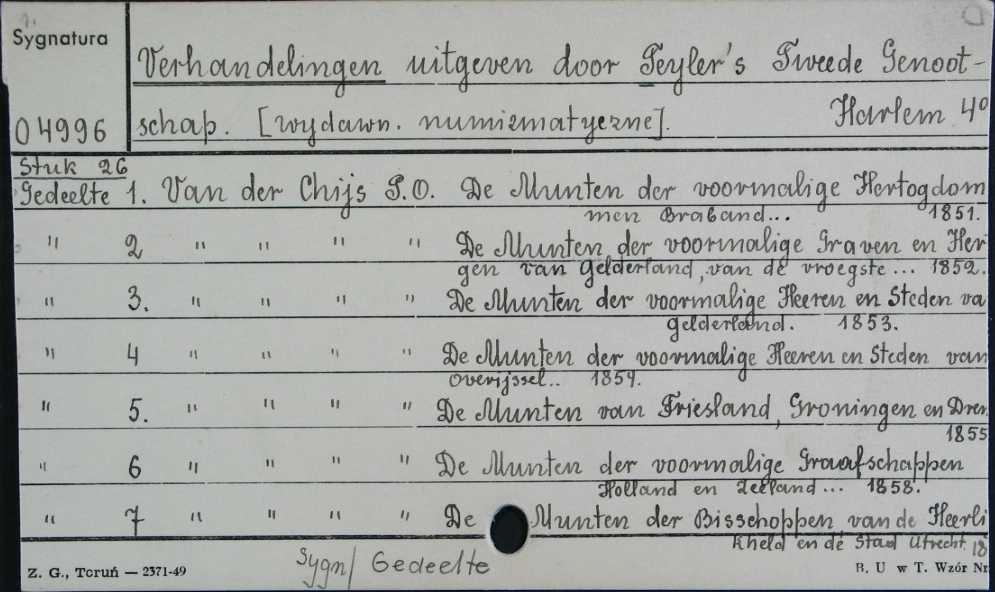 Sygnatura
Verhandelingen uitgeven door Teyler's Tweede Genoot-
04996 schap. [wydawn. numizmatyczne]. Harlem 4º
Stuk 26
Gedeelte 1. Van der Chijs P.O. De Munten der voormalige Hertogdom
men Braband... 1851.
" 2 " " " " De Munten der voormalige Graven en Her
gen van Gelderland, van de vroegste ... 1852.
" 3. " " " " De Munten der voormalige Heeren en Steden va
Gelderland. 1853.
" 4 " " " " De Munten der voormalige Heeren en Steden van
Overijssel.. 1854.
" 5. " " " " De Munten van Friesland, Groningen en Dren
1855
" 6 " " " " De Munten der voormalige Graafschappen
Holland en Zeeland... 1858.
" 7 " " " " De Munten der Bisschoppen van de Heerli
kheld en de Stad Utrecht. 18
Sygn/ Gedeelte
Z. G., Toruń — 2371-49 B. U w T. Wzór Nr